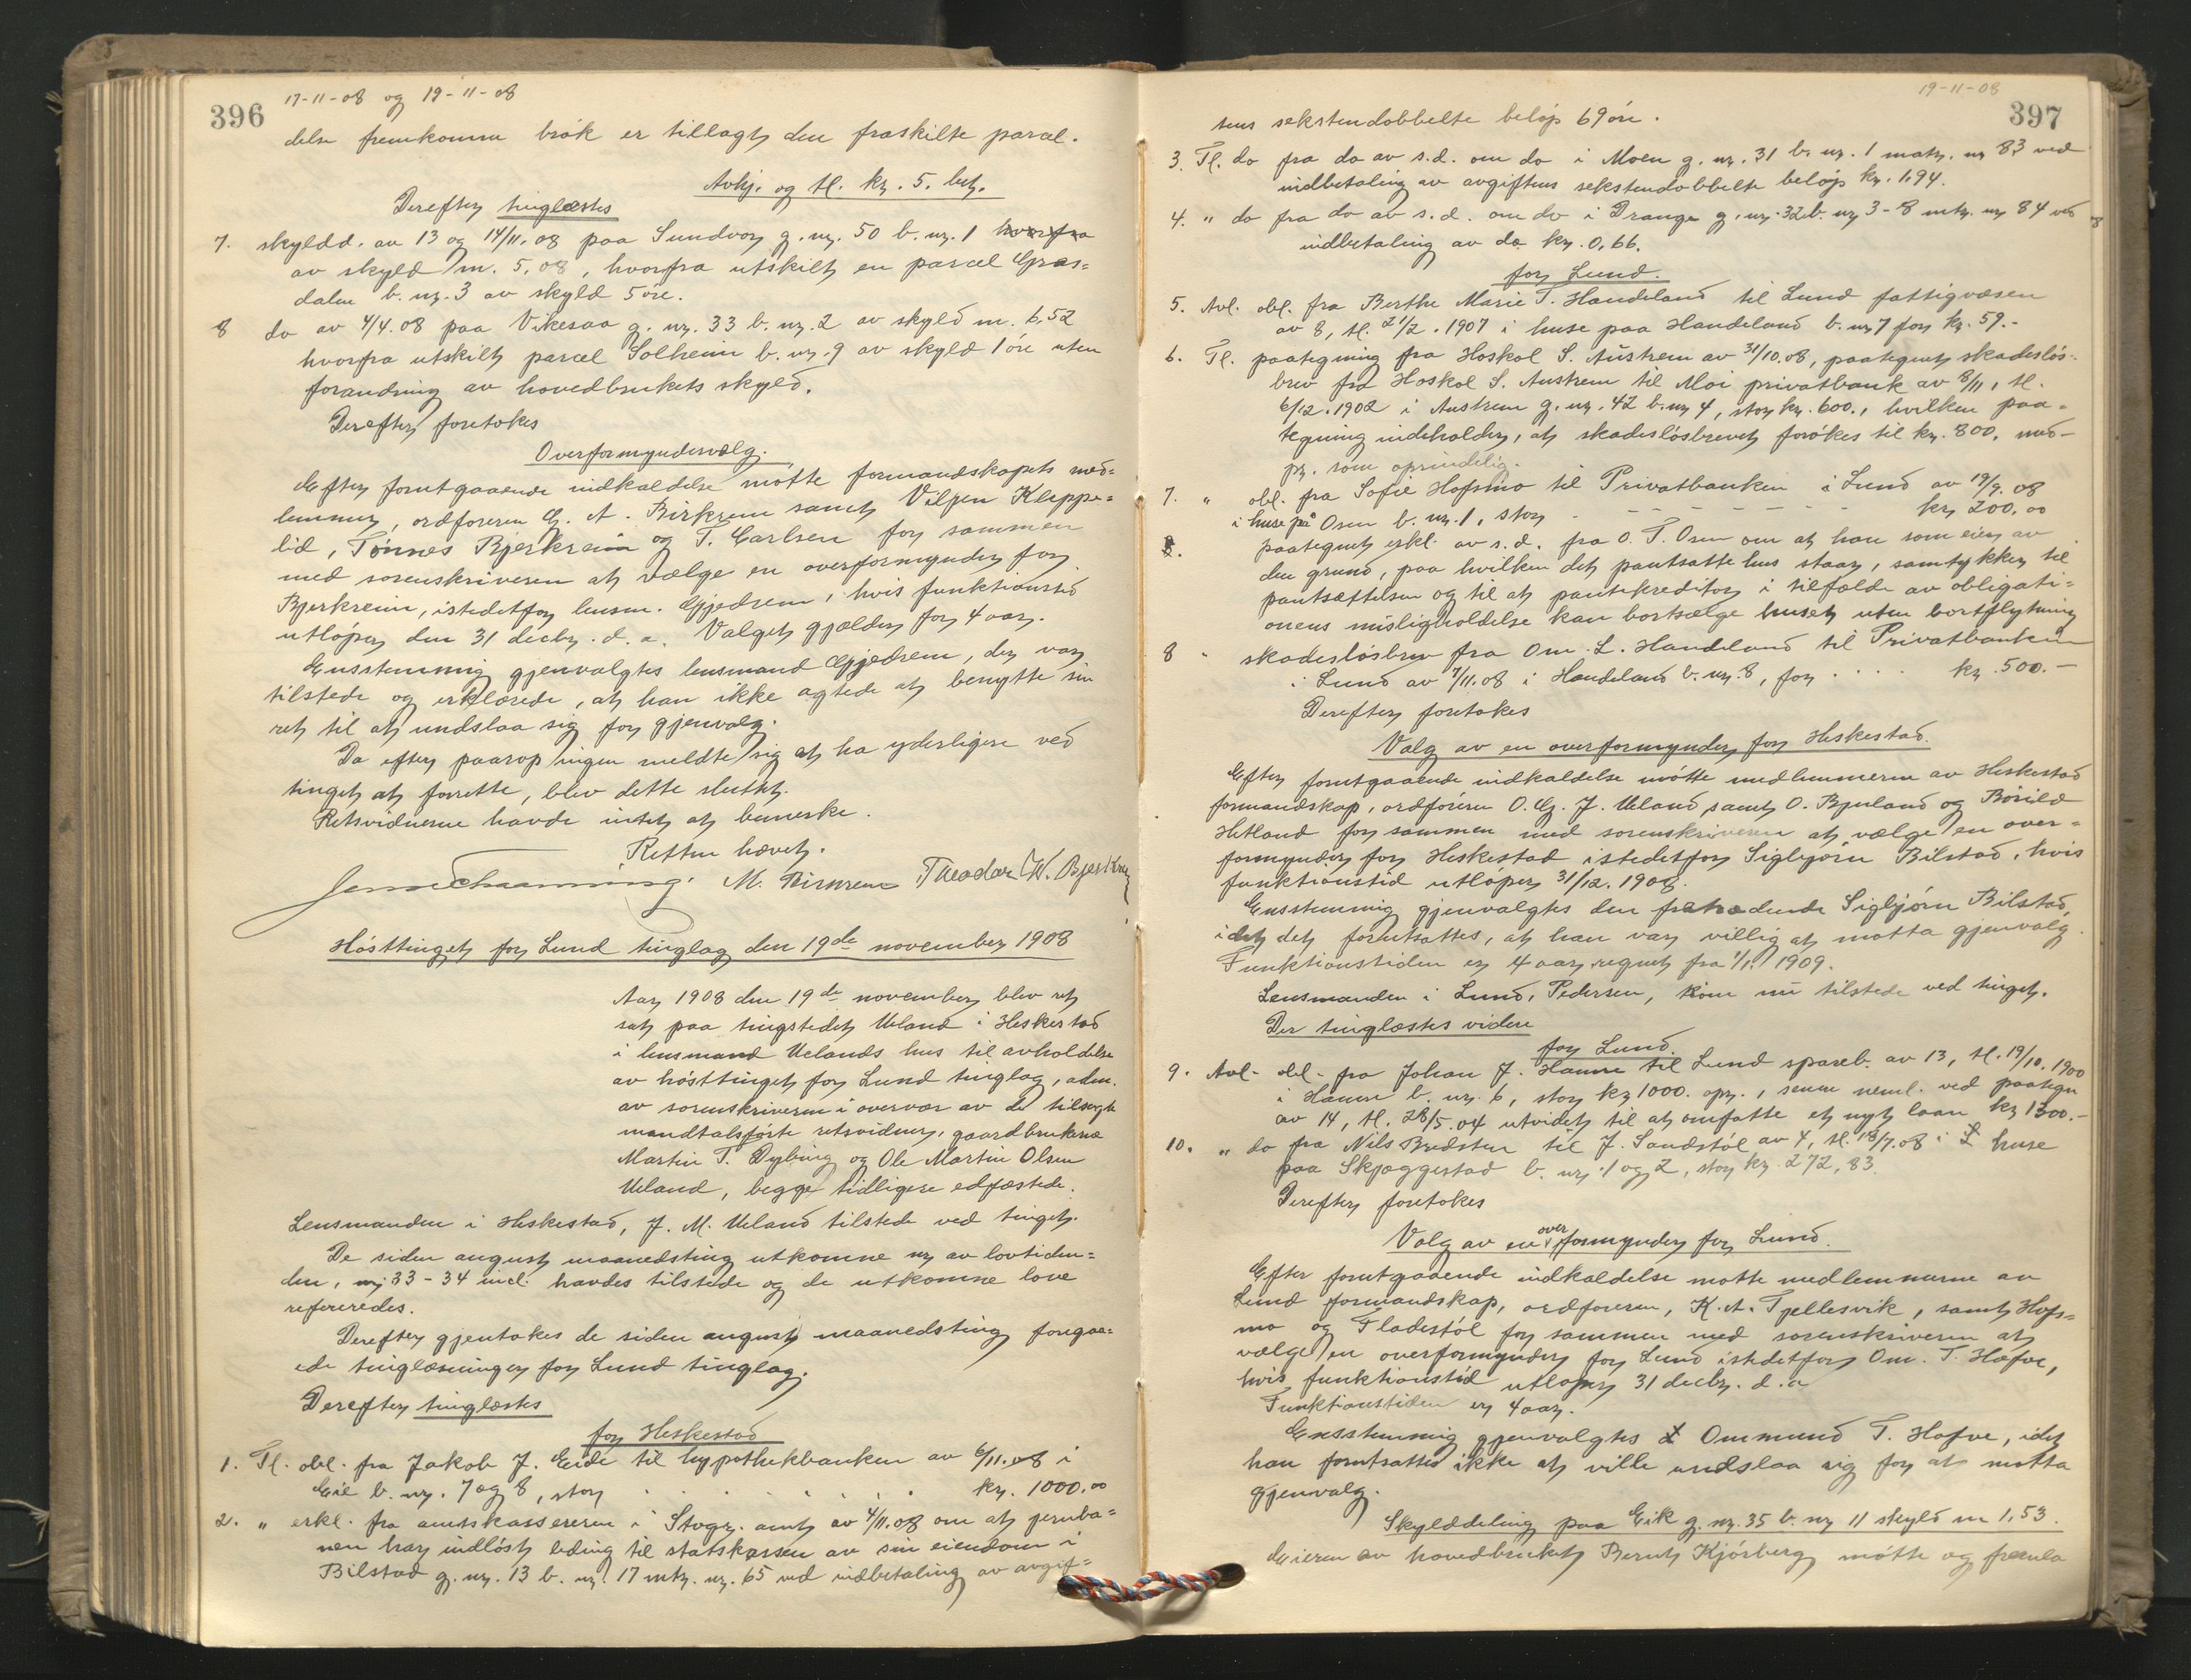 396
17-11-08 og 19-11-08
delse fremkomne brøk er tillagt den fraskilte parcel.
Avhj. og tl. kr. 5. bet.
Derefter tinglæstes
7. skyldd. av 13 og 14/11.08 paa Sundvor g. nr. 50 b. nr. 1 hvorfra
av skyld m. 5,08, hvorfra utskilt en parcel Græs=
dalen b. nr. 3 av skyld 5 øre.
8 do av 4/4.08 paa Vikesaa g. nr. 33 b. nr. 2 av skyld m. 6,52
hvorfra utskilt parcel Solheim b. nr. 9 av skyld 1 øre uten
forandring av hovedbrukets skyld.
Derefter foretokes
Overformyndervalg.
Efter forutgaaende indkaldelse møtte formandskapets med=
lemmer, ordføreren G. A. Birkrem samt Vilgen Kleppe=
lid, Tønnes Bjerkreim og T. Carlsen for sammen
med sorenskriveren at vælge en overformynder for
Bjerkreim, istedetfor lensm. Gjedrem, hvis funktionstid
utløper den 31 decbr. d. a. Valget gjælder for 4 aar.
Ensstemmig gjenvalgtes lensmand Gjedrem, der var
tilstede og erklærede, at han ikke agtede at benytte sin
ret til at undslaa sig for gjenvalg.
Da efter paarop ingen meldte sig at ha yderligere ved
tinget at forrette, blev dette sluttet.
Retsvidnerne havde intet at bemerke.
Retten hævet.
M. Birkrem Theodor W. Bjerkrem
Høsttinget for Lund tinglag den 19de november 1908
Aar 1908 den 19de november blev ret
sat paa tingstedet Ueland i Heskestad
i lensmand Uelands hus til avholdelse
av høsttinget for Lund tinglag, adm.
av sorenskriveren i overvær av de tilsagte
mandtalsførte retsvidner, gaardbrukerne
Martin T. Dybing og Ole Martin Olsen
Ueland, begge tidligere edfæstede.
Lensmanden i Heskestad, J. M. Ueland tilstede ved tinget.
De siden august maanedsting utkomne nr av lovtiden=
den, nr. 33-34 incl. havdes tilstede og de utkomne love
refereredes.
Derefter gjentokes de siden august maanedsting foregaa=
ede tinglæsninger for Lund tinglag.
Derefter tinglæstes
for Heskestad
1. Tl. obl. fra Jakob J. Eide til hypothekbanken av 6/11.08 i
Eie b. nr. 7 og 8, stor . . . . . . kr. 1000.00
2. " erkl. fra amtskassereren i Stvgr. amt av 4/11.08 om at jernba=
nen har indløst leding til statskassen av sin eiendom i
Bilstad g. nr. 13 b. nr. 17 mtr. nr. 65 ved indbetaling av avgif=
19-11-08
397
tens sekstendobbelte beløp 69 øre.
3. Tl. do fra do av s.d. om do i Moen g. nr. 31 b. nr. 1 matr. nr 83 ved
indbetaling av avgiftens sekstendobbelte beløp kr. 1,94.
4. " do fra do av s.d. om do i Drange g. nr. 32 b. nr 3-8 mtr. nr 84 ved
indbetaling av do kr. 0,66.
for Lund.
5. Avl. obl. fra Berthe Marie T. Handeland til Lund fattigvæsen
av 8, tl. 21/2. 1907 i huse paa Handeland b. nr 7 for kr. 59.-
6. Tl. paategning fra Hoskol S. Austrem av 31/10.08, paategnet skadesløs-
brev fra Hoskol S. Austrem til Moi privatbank av 8/11, tl.
6/12. 1902 i Austrem g. nr. 42 b. nr 4, stor kr. 600., hvilken paa-
tegning indeholder, at skadesløsbrevet forøkes til kr. 800. med
pr. som oprindelig.
7. " obl. fra Sofie Hofsmo til Privatbanken i Lund av 19/9.08
i huse på Osen b. nr. 1, stor - - - - - - kr 200.00
paategnet erkl. av s.d. fra O. T. Osen om at han som eier av
den grund, paa hvilken det pantsatte hus staar, samtykker til
pantsættelsen og til at pantekreditor i tilfælde av obligati=
onens misligholdelse kan bortsælge huset uten bortflytning
8 " skadesløsbrev fra Om. L. Handeland til Privatbanken
i Lund av 7/11.08 i Handeland b. nr. 8, for . . . . kr. 500.-
Derefter foretokes
Valg av en overformynder for Heskestad.
Efter forutgaaende indkaldelse møtte medlemmerne av Heskestad
formandskap, ordføreren O. G. J. Ueland, samt O. Bjuland og Børild
Hetland for sammen med sorenskriveren at vælge en over=
formynder for Heskestad istedetfor Sigbjørn Bilstad, hvis
funktionstid utløper 31/12. 1908.
Ensstemmig gjenvalgtes den fratrædende Sigbjørn Bilstad,
idet det forutsattes, at han var villig at motta gjenvalg.
Funktionstiden er 4 aar, regnet fra 1/1. 1909.
Lensmanden i Lund, Pedersen, kom nu tilstede ved tinget.
Der tinglæstes videre
for Lund.
9. Avl. obl. fra Johan J. Hamre til Lund spareb. av 13, tl. 19/10. 1900
i Hamre b. nr. 6, stor kr 1000. opr., senere neml. ved paategn
av 14, tl. 28/5.04 utvidet til at omfatte et nyt laan kr 1300.-
10. " do fra Nils Bredsten til J. Sandstøl av 4, tl. 18/7.08 i huse
paa Skjæggestad b. nr. 1 og 2, stor kr. 272,83.
Derefter foretokes
Valg av en overformynder for Lund.
Efter forutgaaende indkaldelse møtte medlemmerne av
Lund formandskap, ordføreren, K. A. Tjellesvik, samt Hofs=
mo og Fladestøl for sammen med sorenskriveren at
vælge en overformynder for Lund istedetfor Om. T. Hafve,
hvis funktionstid utløper 31 decbr. d. a
Funktionstiden er 4 aar.
Ensstemmig gjenvalgtes Ommund T. Hofve, idet
han forutsattes ikke at ville undslaa sig for at motta
gjenvalg.
Skylddeling paa Eik g. nr. 35 b. nr 11 skyld m 1,53.
Eieren av hovedbruket Bernt Kjørberg møtte og fremla